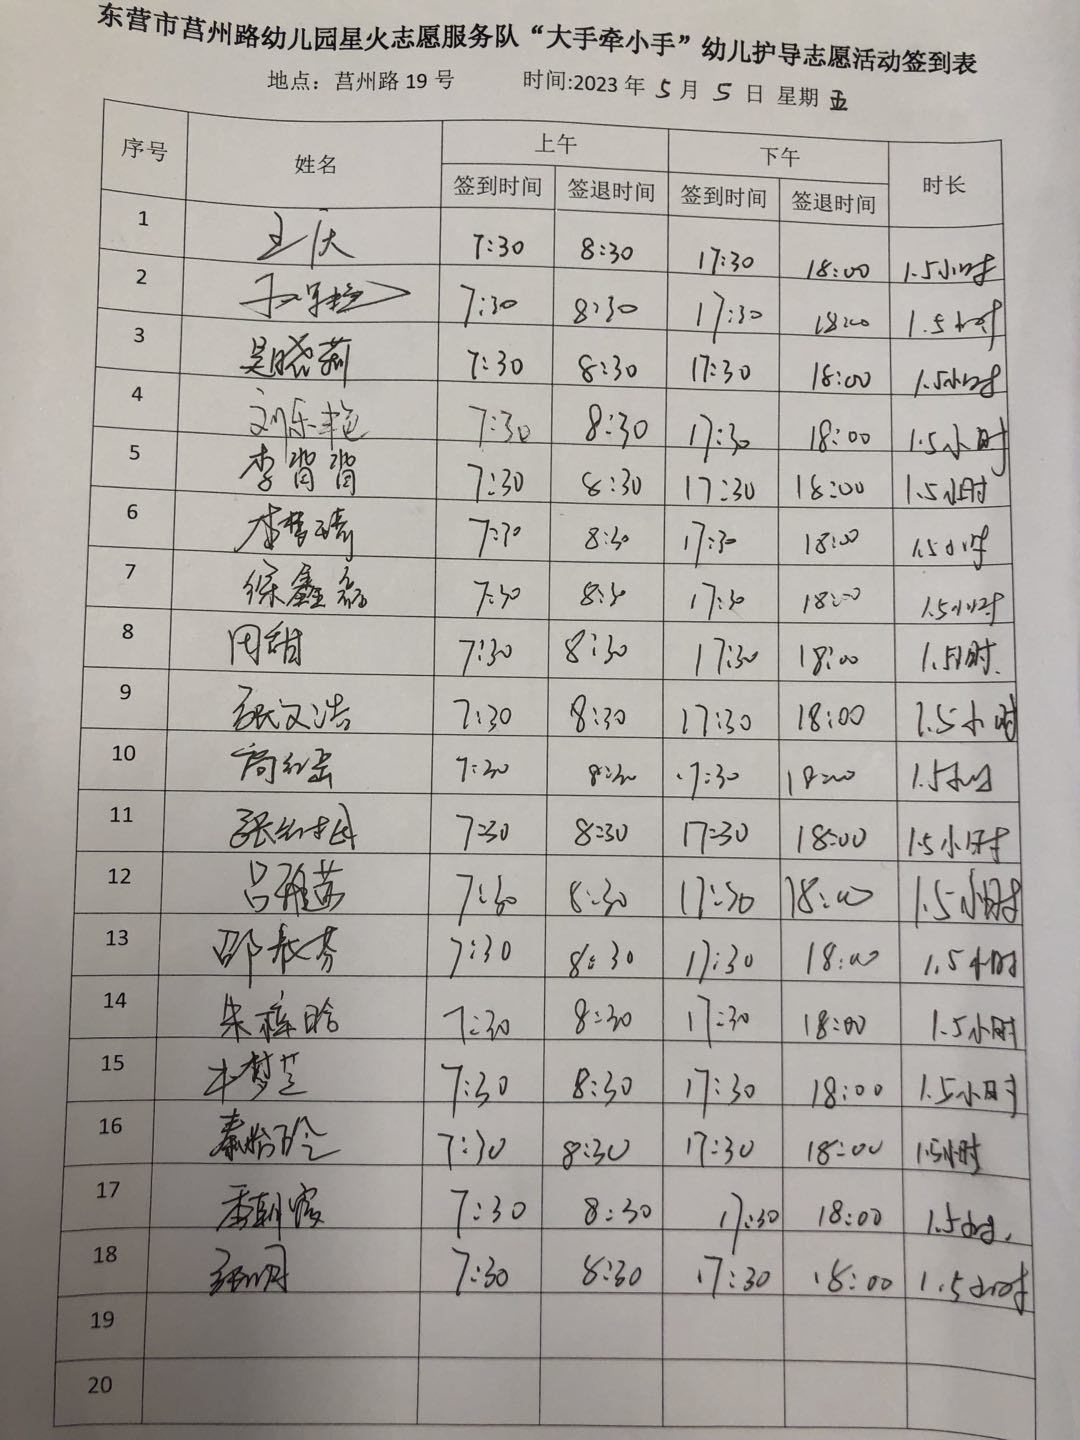 东营市莒州路幼儿园星火志愿服务队“大手牵小手”幼儿护导志愿活动签到表
地点：莒州路19号 时间:2023年5月5日 星期五
序号 姓名 上午 下午 时长
签到时间 签退时间 签到时间 签退时间
1 7:30 8:30 17:30 18:00 1.5小时
2 7:30 8:30 17:30 18:00 1.5小时
3 吴晓莉 7:30 8:30 17:30 18:00 1.5小时
4 刘乐艳 7:30 8:30 17:30 18:00 1.5小时
5 李茵茵 7:30 8:30 17:30 18:00 1.5小时
6 李梦琦 7:30 8:30 17:30 18:00 1.5小时
7 徐鑫磊 7:30 8:30 17:30 18:00 1.5小时
8 田甜 7:30 8:30 17:30 18:00 1.5小时
9 张文浩 7:30 8:30 17:30 18:00 1.5小时
10 7:30 8:30 17:30 18:00 1.5小时
11 7:30 8:30 17:30 18:00 1.5小时
12 吕雅茹 7:30 8:30 17:30 18:00 1.5小时
13 7:30 8:30 17:30 18:00 1.5小时
14 朱梓晗 7:30 8:30 17:30 18:00 1.5小时
15 7:30 8:30 17:30 18:00 1.5小时
16 7:30 8:30 17:30 18:00 1.5小时
17 7:30 8:30 17:30 18:00 1.5小时
18 7:30 8:30 17:30 18:00 1.5小时
19
20